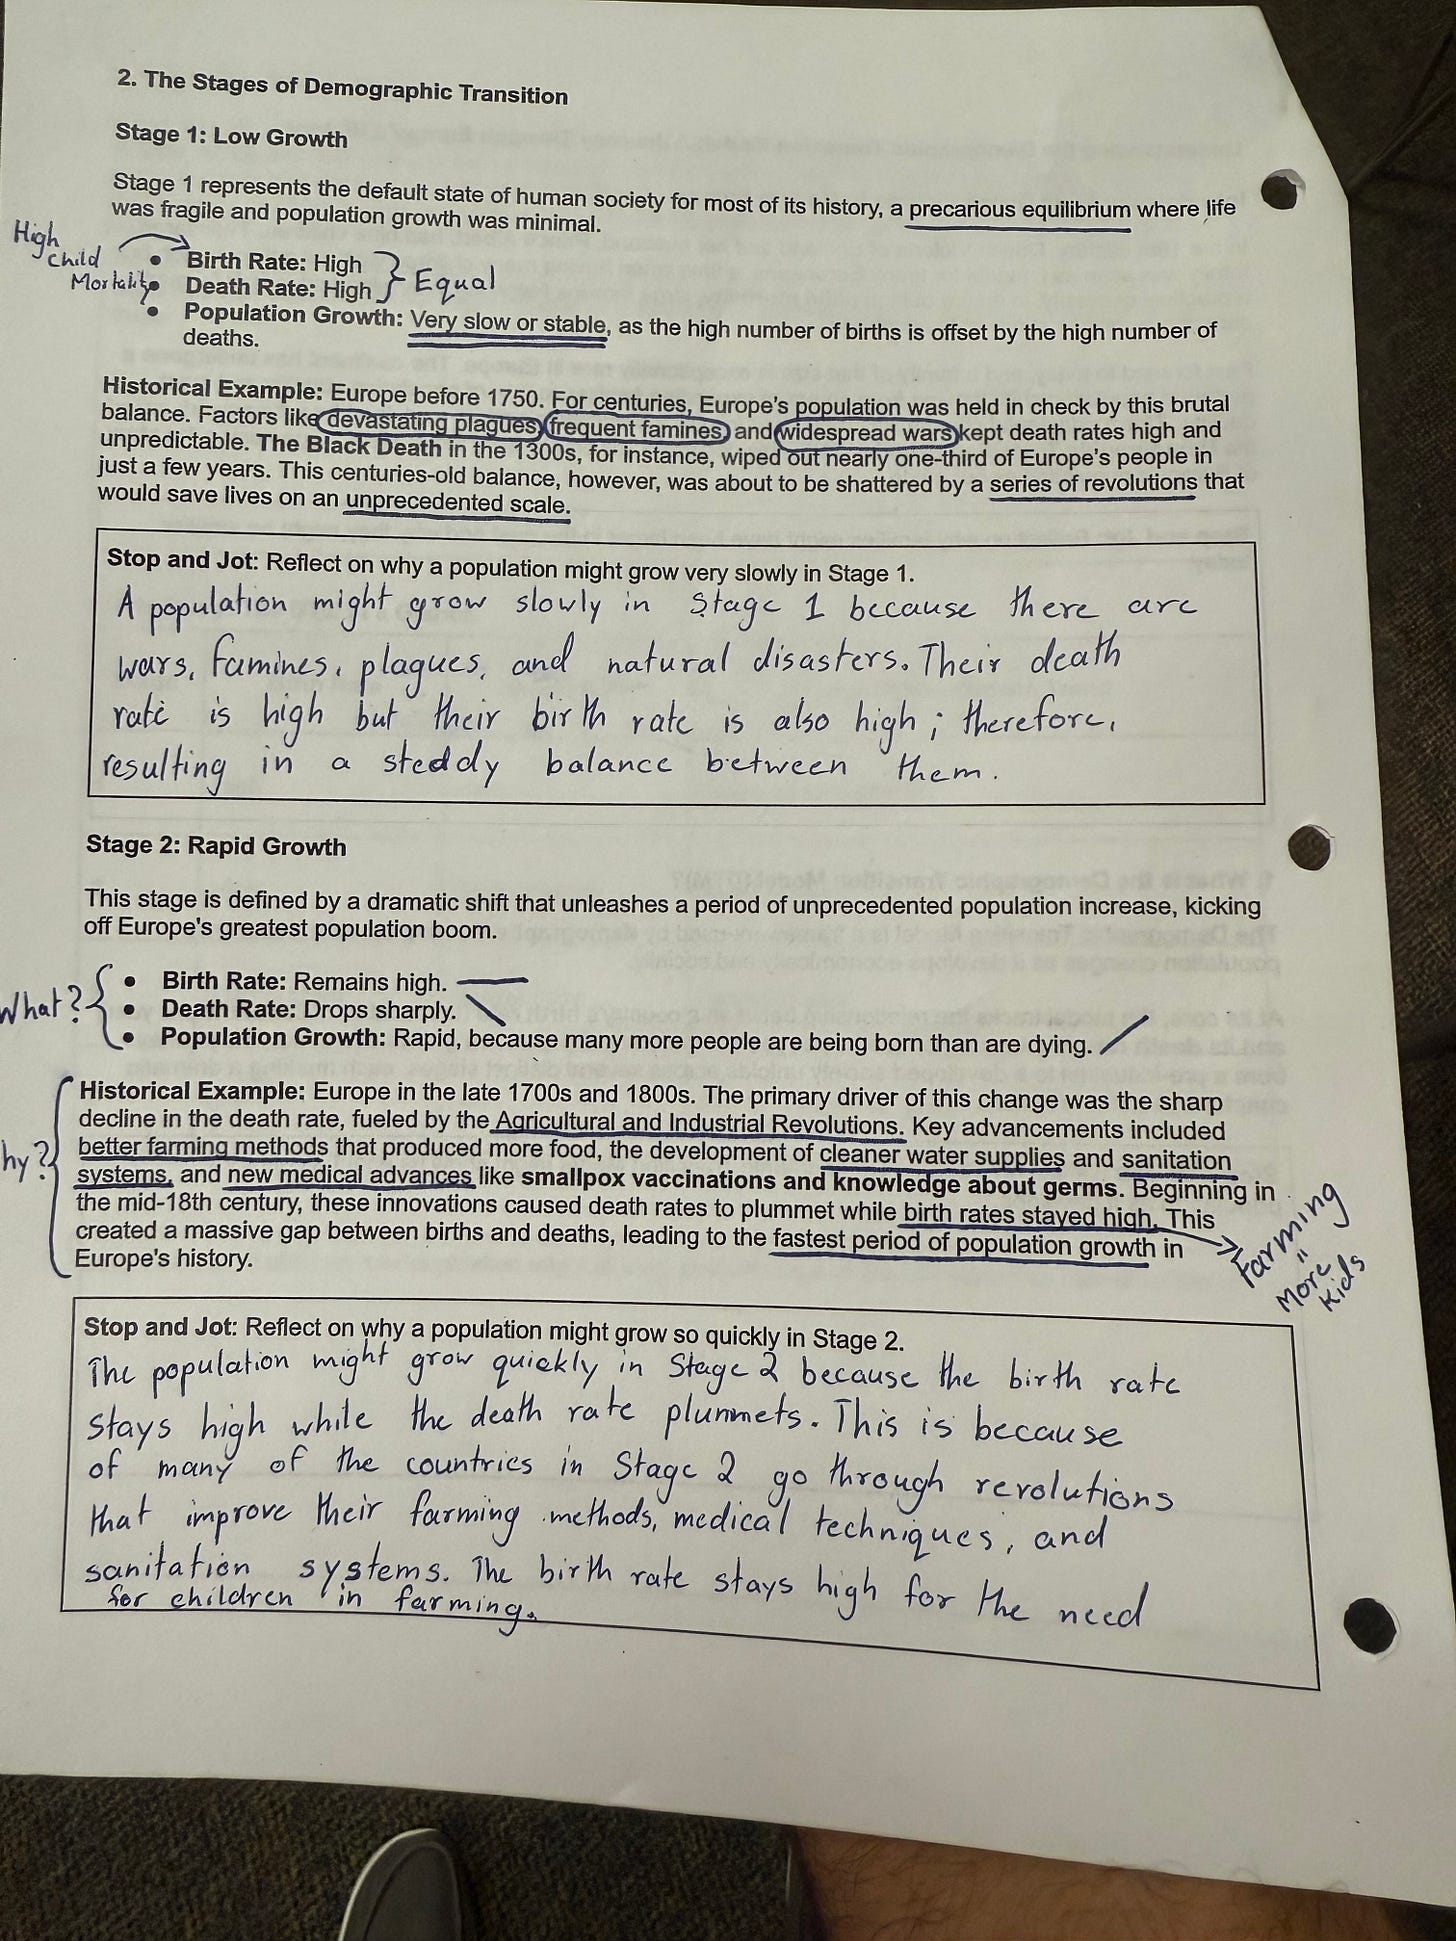 2. The Stages of Demographic Transition
Stage 1: Low Growth
Stage 1 represents the default state of human society for most of its history, a precarious equilibrium where life
was fragile and population growth was minimal.
High
Child
Mortality
• Birth Rate: High
• Death Rate: High
Equal
• Population Growth: Very slow or stable, as the high number of births is offset by the high number of
deaths.
Historical Example: Europe before 1750. For centuries, Europe's population was held in check by this brutal
balance. Factors like devastating plagues, frequent famines, and widespread wars kept death rates high and
unpredictable. The Black Death in the 1300s, for instance, wiped out nearly one-third of Europe's people in
just a few years. This centuries-old balance, however, was about to be shattered by a series of revolutions that
would save lives on an unprecedented scale.
Stop and Jot: Reflect on why a population might grow very slowly in Stage 1.
A population might grow slowly in Stage 1 because there are
wars, famines, plagues, and natural disasters. Their death
rate is high but their birth rate is also high; therefore,
resulting in a steddy balance between them.
Stage 2: Rapid Growth
This stage is defined by a dramatic shift that unleashes a period of unprecedented population increase, kicking
off Europe's greatest population boom.
What?
• Birth Rate: Remains high.
• Death Rate: Drops sharply.
• Population Growth: Rapid, because many more people are being born than are dying.
hy?
Historical Example: Europe in the late 1700s and 1800s. The primary driver of this change was the sharp
decline in the death rate, fueled by the Agricultural and Industrial Revolutions. Key advancements included
better farming methods that produced more food, the development of cleaner water supplies and sanitation
systems, and new medical advances like smallpox vaccinations and knowledge about germs. Beginning in
the mid-18th century, these innovations caused death rates to plummet while birth rates stayed high. This
created a massive gap between births and deaths, leading to the fastest period of population growth in
Europe's history.
Farming
=
More
Kids
Stop and Jot: Reflect on why a population might grow so quickly in Stage 2.
The population might grow quickly in Stage 2 because the birth rate
stays high while the death rate plummets. This is because
of many of the countries in Stage 2 go through revolutions
that improve their farming methods, medical techniques, and
sanitation systems. The birth rate stays high for the need
for children in farming.